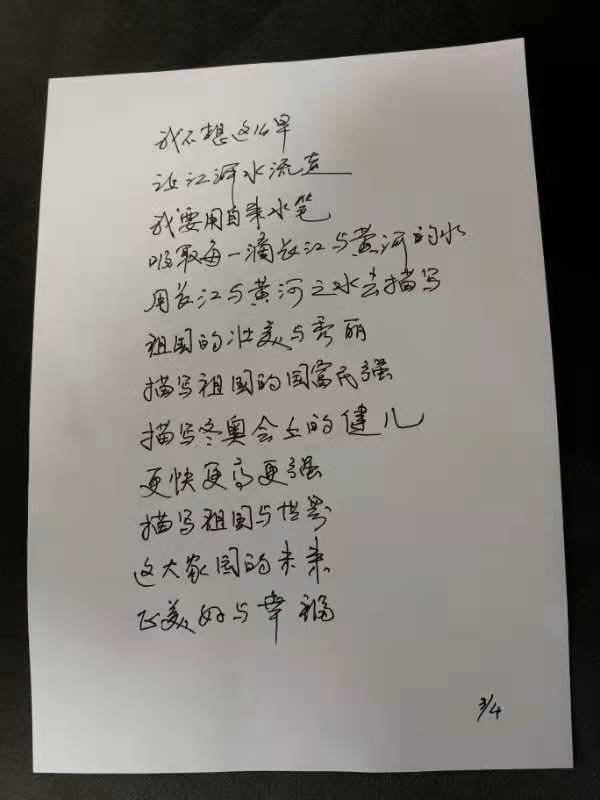 我不想这么早
让江河水流去
我要用自来水笔
吸取每一滴长江与黄河的水
用长江与黄河之水去描写
祖国的壮美与秀丽
描写祖国的国富民强
描写冬奥会上的健儿
更快更高更强
描写祖国与世界
这大家园的未来
正美好与幸福
3/4